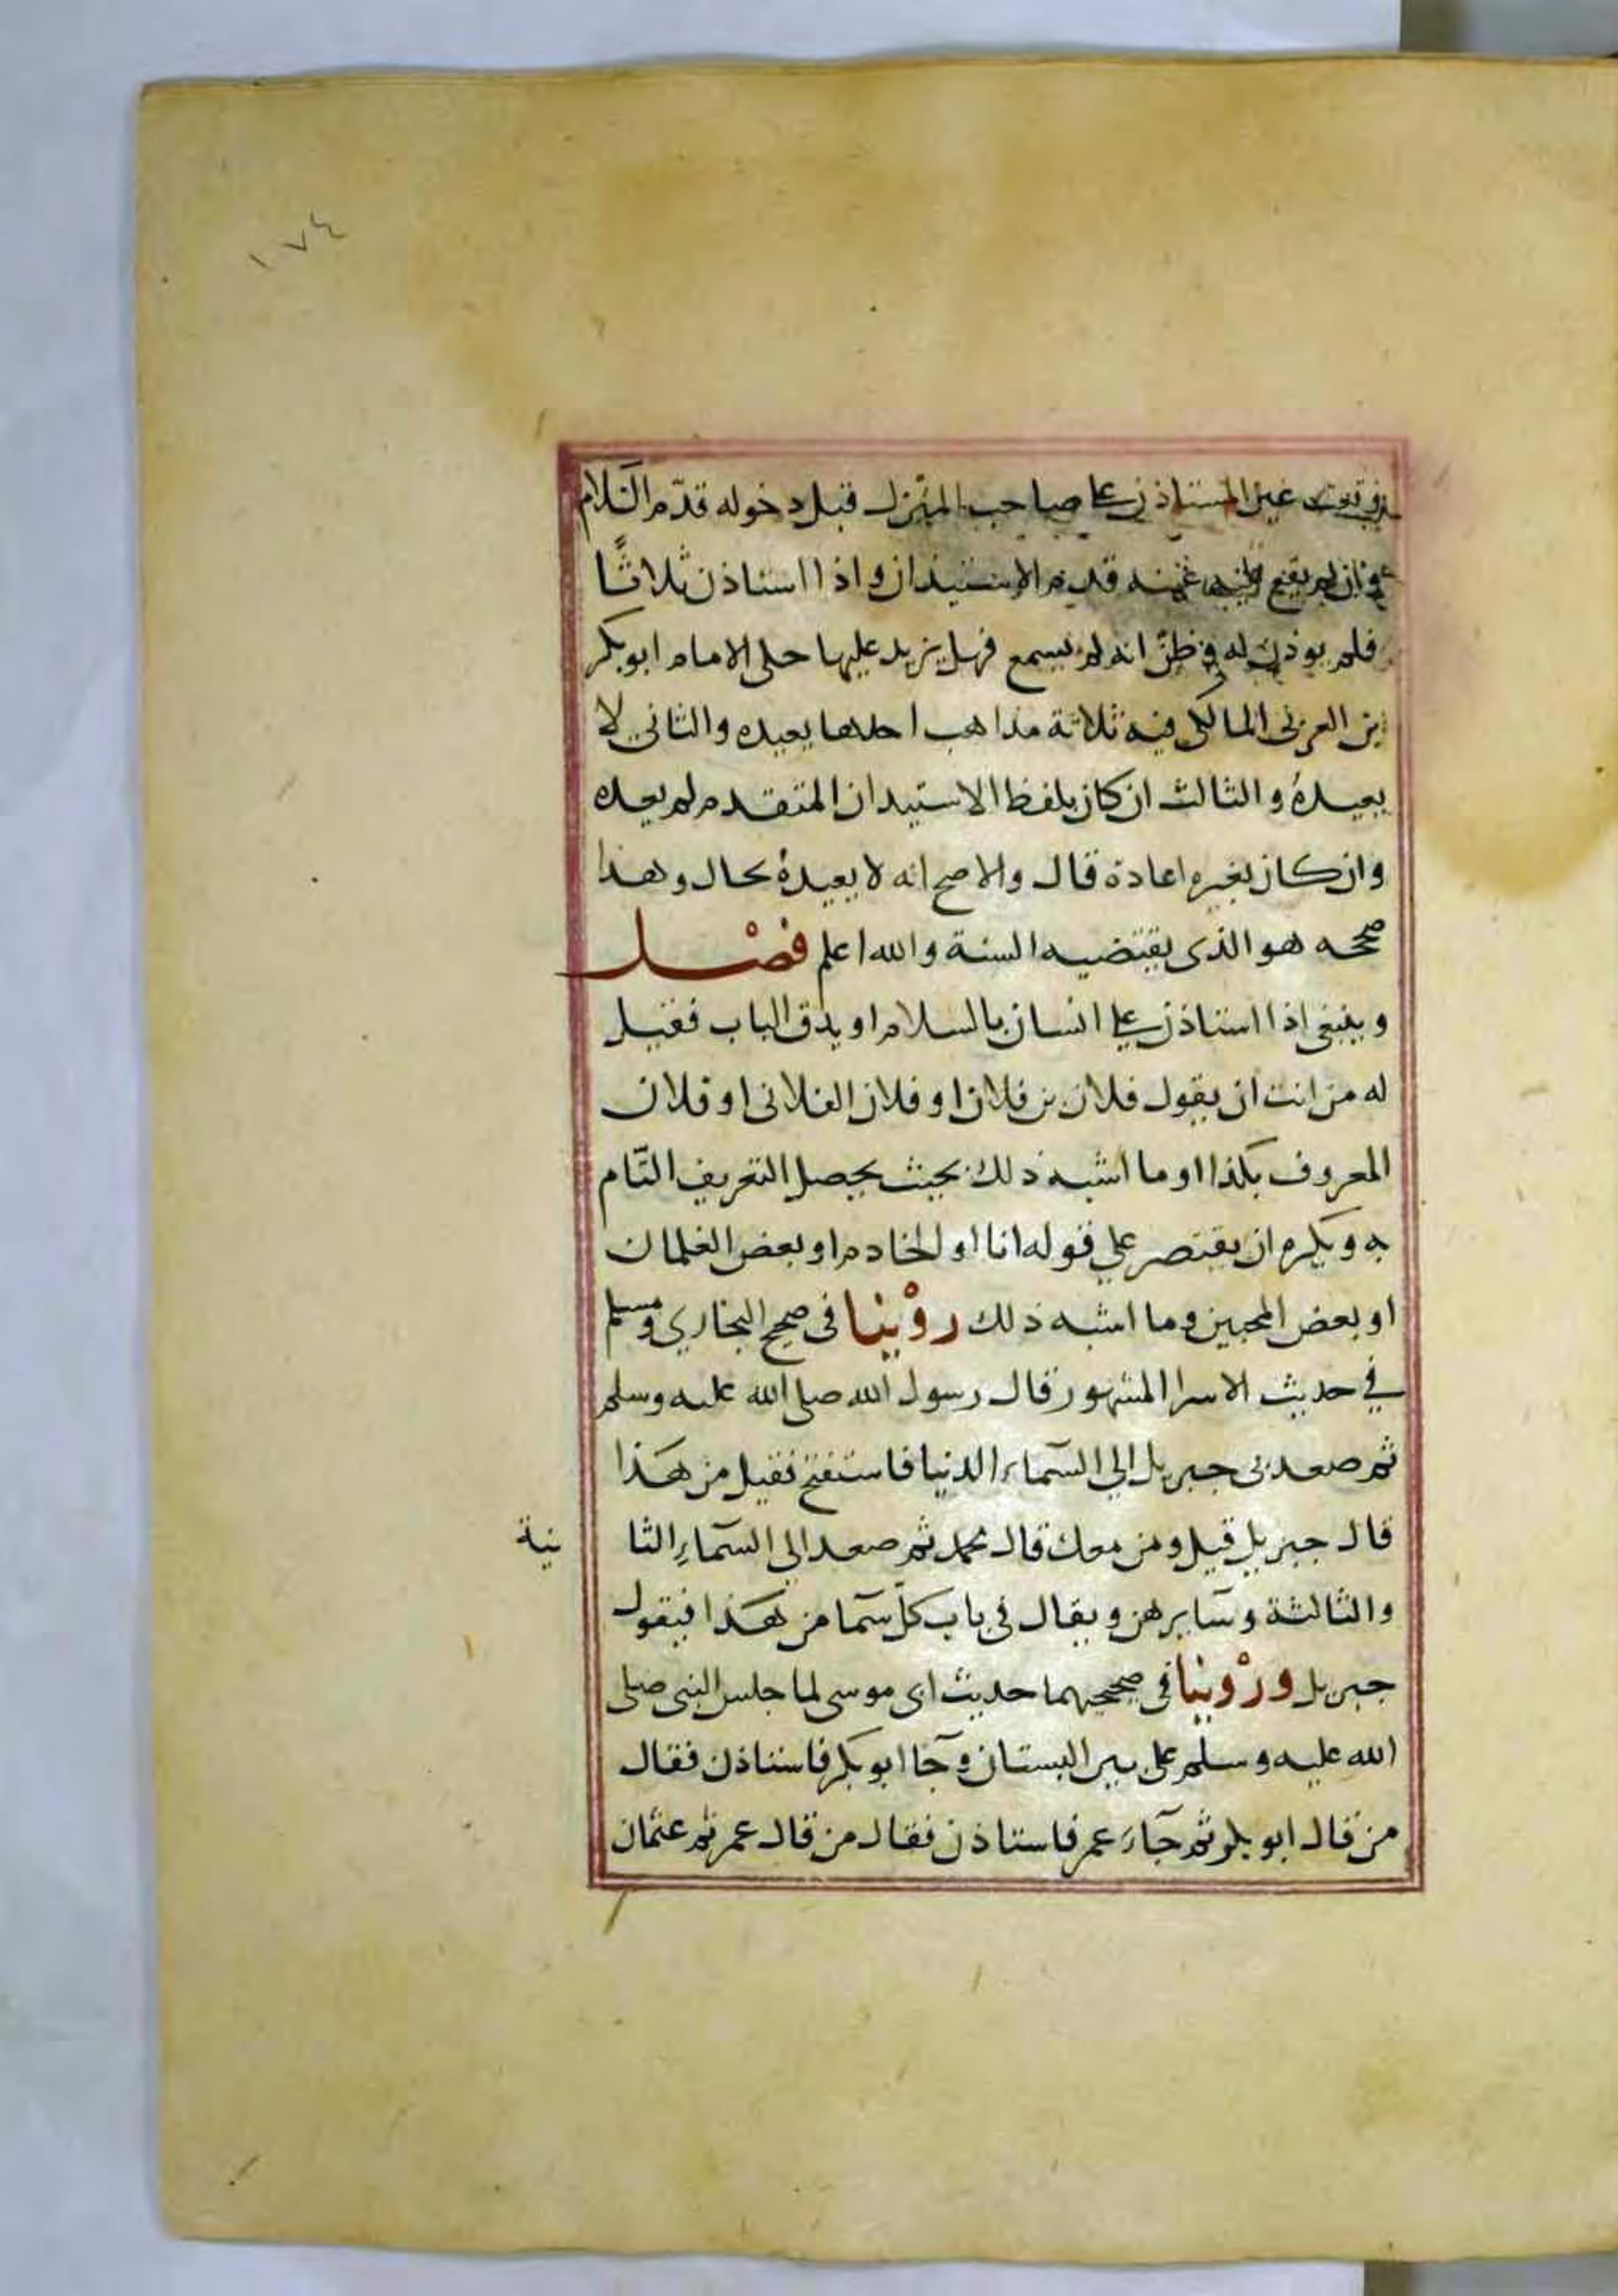 ١٧٤
وقعت عين المستاذن على صاحب المنزل قبل دخوله قدّم السَلام
وان لم يقع عليه عينه قدم الاستيذان واذا استاذن ثلاثًا
فلم يوذن له وظنّ انه لم يسمع فهل يزيد عليها حكى الامام ابوبكر
بن العربى المالكى فيه ثلاثة مذاهب احدها يعيده والثانى لا
يعيدهُ والثالث ان كان بلفظ الاستيدان المتقدم لم يعده
وان كان بغيره اعادة قال والاصح انه لا يعيدهُ بحال وهذا
صححه هو الذى يقتضيه السنة والله اعلم فصْل
وينبغى اذا استاذن على انسان بالسلام او بدق الباب فقيل
له من انت ان يقول فلان بن فلان او فلان الفلانى او فلان
المعروف بكذا او ما اشبه ذلك بحيث يحصل التعريف التّام
به ويكره ان يقتصر على قوله انا او الخادم او بعض الغلمان
او بعض المحبين وما اشبه ذلك روْينا فى صحيح البخاري ومسلم
في حديث الاسرا المشهور قال رسول الله صلى الله عليه وسلم
ثم صعد بى جبريل الي السَّماء الدنيا فاستفتح فقيل من هَذا
قال جبريل قيل ومن معك قال محمد ثم صعد الى السَّماءِ الثا نية
والثالثة وسَايرهن ويقال فى باب كلّ سَما من هَذا فيقول
جبريل ورْوينا فى صحيحهما حديث ابى موسى لما جلس النبى صلى
الله عليه وسلم على بير البستان وجَا ابو بكر فاستاذن فقال
من قال ابو بكر ثم جَاءَ عمر فاستاذن فقال من قال عمر ثم عثمان